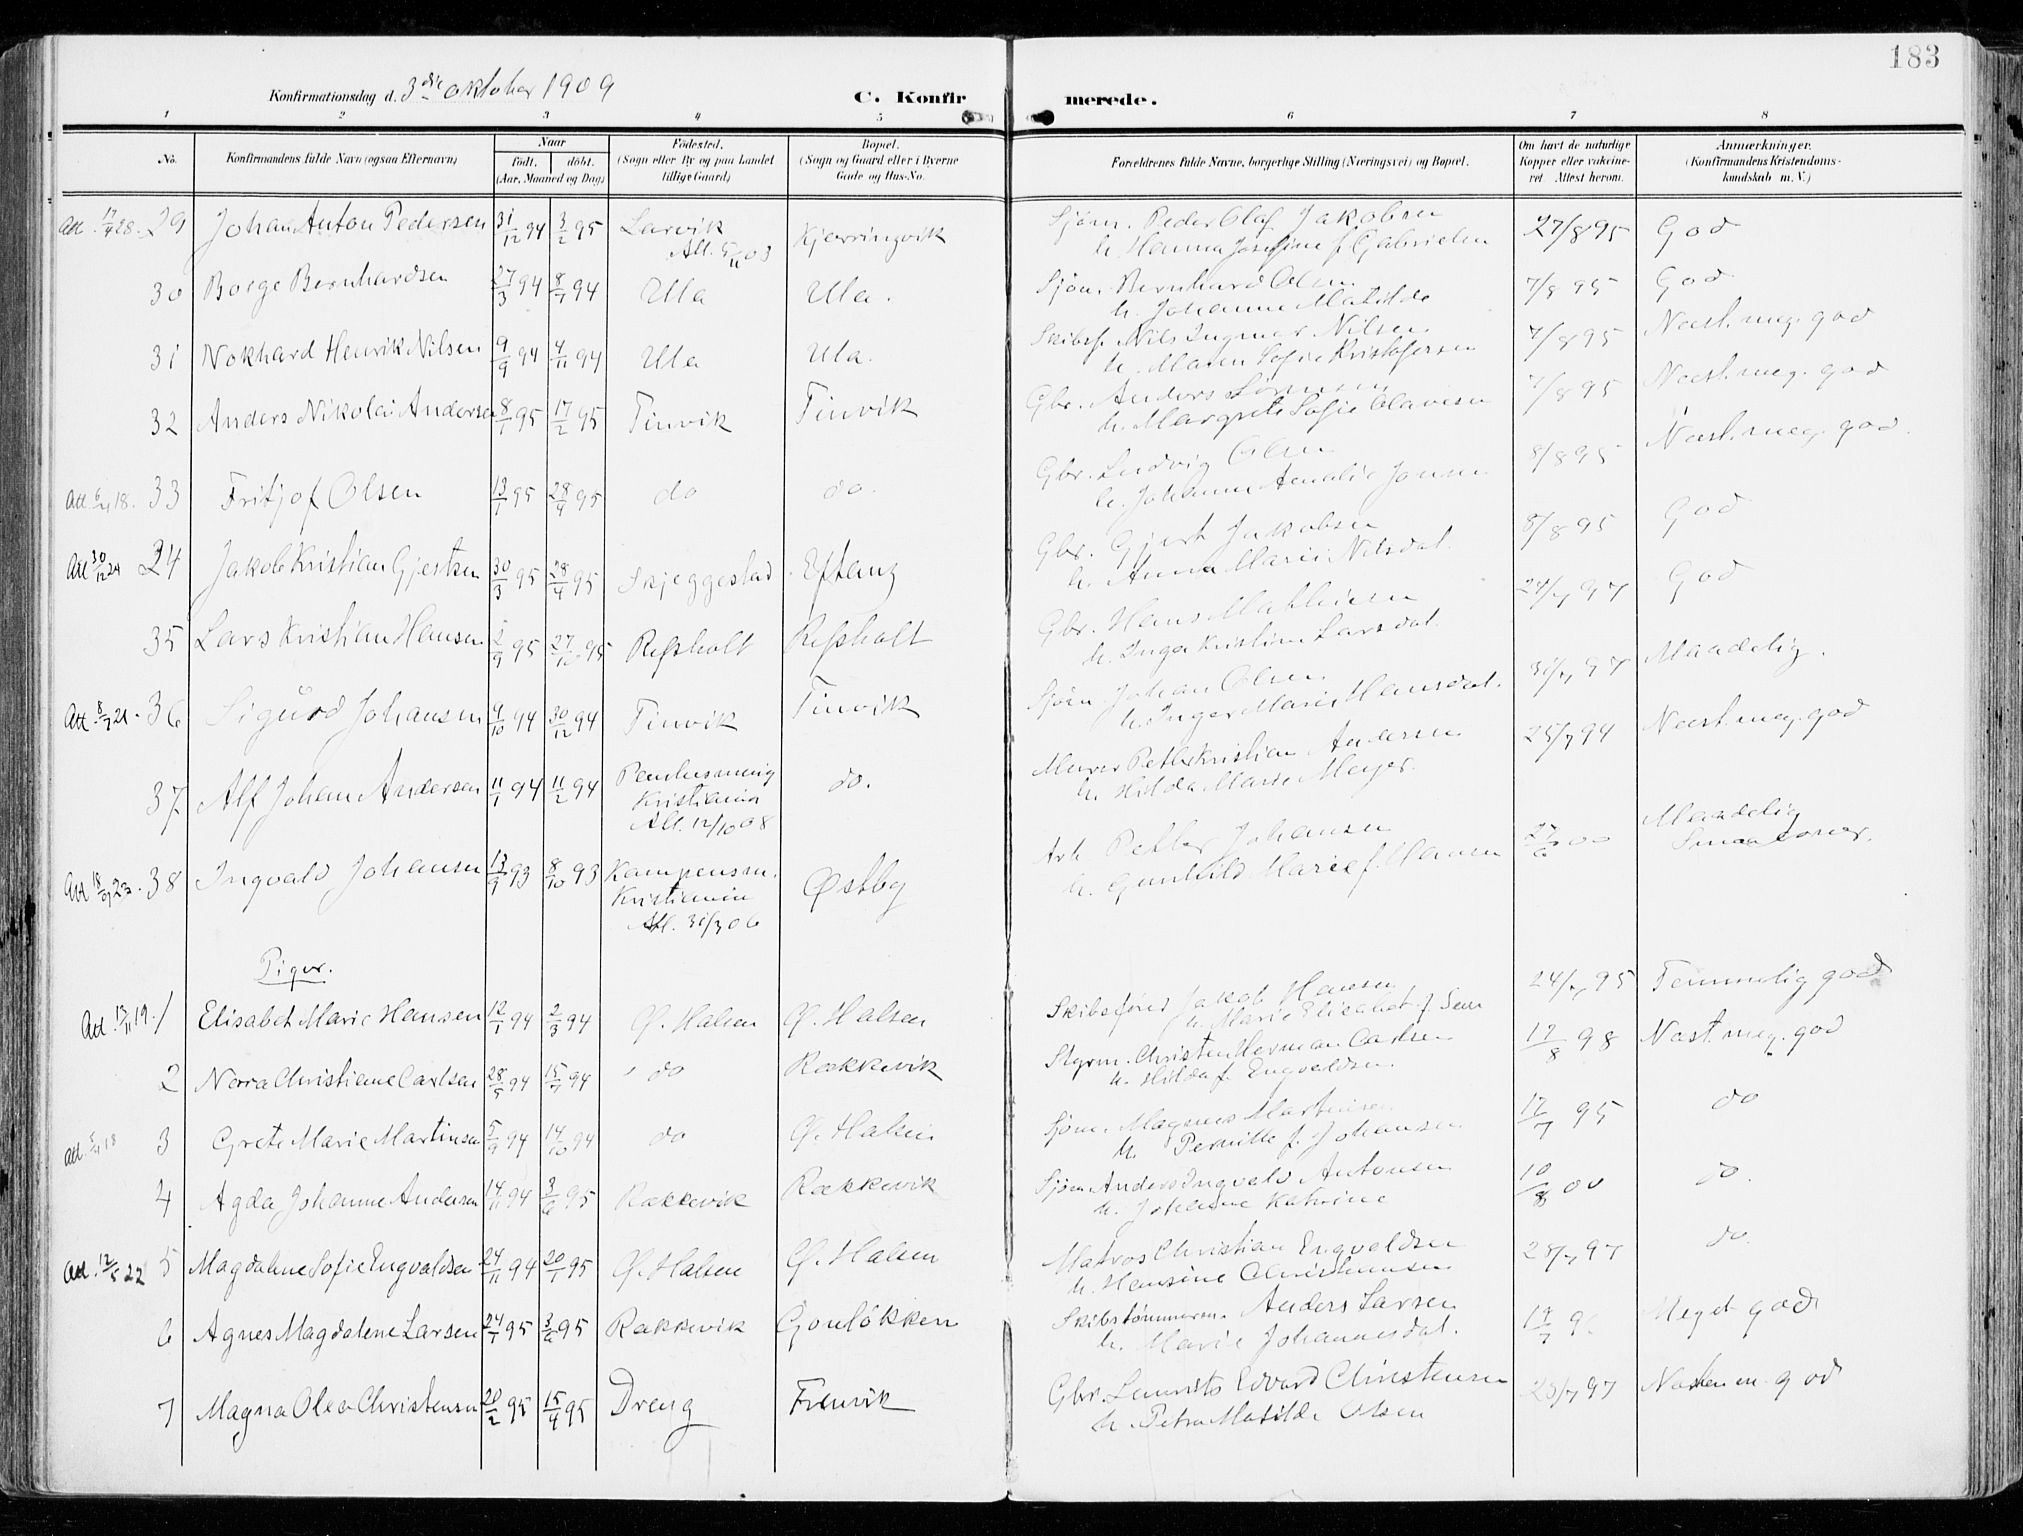 183
Konfirmationsdag d. 3die oktober 1909
C. Konfirmerede.
1 2 3 4 5 6 7 8
No.
Konfirmandens fulde Navn (ogsaa Efternavn)
Naar
født. døbt.
(Aar, Maaned og Dag)
Fødested.
(Sogn eller By og paa Landet
tillige Gaard)
Bopæl.
(Sogn og Gaard eller i Byerne
Gade og Hus-No.
Forældrenes fulde Navne, borgerlige Stilling (Næringsvei) og Bopæl.
Om havt de naturlige
Kopper eller vakcine-
ret Attest herom.
Anmærkninger.
(Konfirmandens Kristendoms-
kundskab m. V.)
Att. 17/4 28. 29 Johan Anton Pedersen 31/12 94 3/2 95 Larvik Kjærringvik Sjøm. Peder Olaf Jakobsen 27/8 95 God
Att. 5/11 03 h. Hanna Josefine f. Gabrielsen
30 Borge Bernhardsen 27/3 94 8/7 94 Ula Ula. Sjøm. Bernhard Olsen 7/8 95 God
h. Johanne Matilde
31 Nokhard Henrik Nilsen 9/9 94 4/11 94 Ula Ula. Skibsf. Nils Ingmar Nilsen 7/8 95 Næst. meg. god
h. Maren Sofie Kristofersen
32 Anders Nikolai Andersen 8/1 95 17/2 95 Tinvik Tinvik Gbr. Anders Sørensen 7/8 95 Næst. meg. god
h. Margrete Sofie Olavesen
Att. 6/4 18. 33 Fritjof Olsen 13/1 95 28/4 95 do do. Gbr. Ludvig Olsen 8/8 95 Næst. meg. god.
h. Johanne Amalie Jonsen
Att 30/12 24 34 Jakob Kristian Gjertsen 30/3 95 28/4 95 Skjeggestad Eftang Gbr. Gjert Jakobsen 8/8 95 God
h. Anna Marie Nilsdat.
35 Lars Kristian Hansen 2/9 95 27/10 95 Refsholt Refsholt Gbr. Hans Mathisen 24/7 97 God
h. Inga Kristine Larsdat.
Att. 8/7 21. 36 Sigurd Johansen 4/10 94 30/12 94 Tinvik Tinvik Sjøm. Johan Olsen 31/7 97 Maadelig.
h. Inger Marie Hansdat.
37 Alf Johan Andersen 11/1 94 11/2 94 Paulusmenig do. Murer Petter Kristian Andersen 25/7 94 Næst. meg. god
Kristiania h. Hilda Marie Meyer.
Att. 12/10 08
Att 18/7 23. 38 Ingvald Johansen 13/9 93 8/10 93 Kampensm. Østby Arb. Petter Johansen 27/6 00 Maadelig
Kristiania h. Gunhild Marie f. Hansen
Att. 31/3 06
Piger.
Att. 13/11 19. 1 Elisabet Marie Hansen 12/1 94 2/3 94 Ø. Halsen Ø. Halsen Skibsfører Jakob Hansen 24/7 95 Temmelig god
h. Marie Elisabet f.
2 Norra Christiane Carlsen 28/5 94 15/7 94 do Rækkevik Styrm. Christen Herman Carlsen 17/8 98 Næst. meg. god
h. Hilda f. Engvaldsen.
Att. 5/4 18 3 Grete Marie Martinsen 5/9 94 14/10 94 do Ø. Halsen Sjøm. Magnus Martinsen 17/7 95 do
h. Pernille f. Johansen
4 Agda Johanne Andersen 14/11 94 3/6 95 Rækkevik Rækkevik Sjøm. Anders Ingvald Antonsen 10/8 00 do.
h. Johanne Katrine
Att. 12/5 22 5 Magdalene Sofie Engvaldsen 24/11 94 20/1 95 Ø. Halsen Ø. Halsen Matros Christian Engvaldsen 28/7 97 do.
h. Hansine Christiansen
6 Agnes Magdalene Larsen 24/1 95 3/6 95 Rækkevik Gonløkken Skibstømmerm. Anders Larsen 17/7 9 Meget god
h. Marie Johannesdat.
7 Magna Olea Christensen 20/2 95 15/4 95 Dreng Frenvik Gbr. Laurits Edvard Christensen 23/7 97 Næsten m. god
h. Petra Matilde Olsen